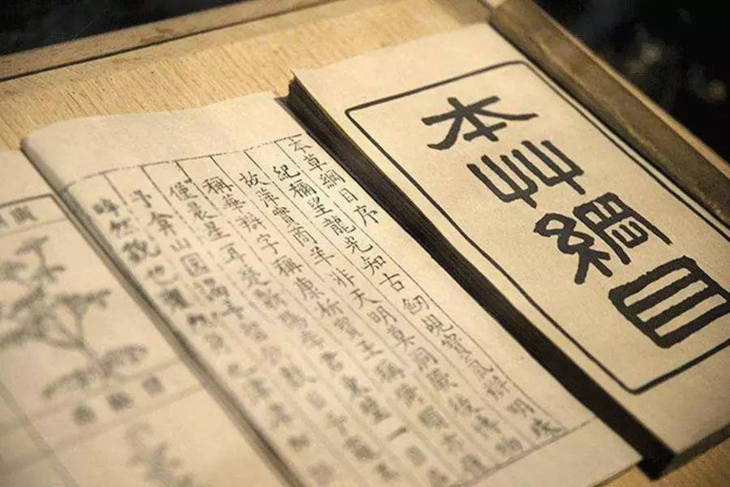 本艸綱目
本草綱目序
紀稱望龍光知古劒覘寶氣辨明珠
故萍實商羊非天明莫洞厥後博物
稱華辯字稱康析寶玉稱
僅晨星耳楚蘄陽李君東璧一
予弇山園謁予留飲數日予
睟然貌也癯然